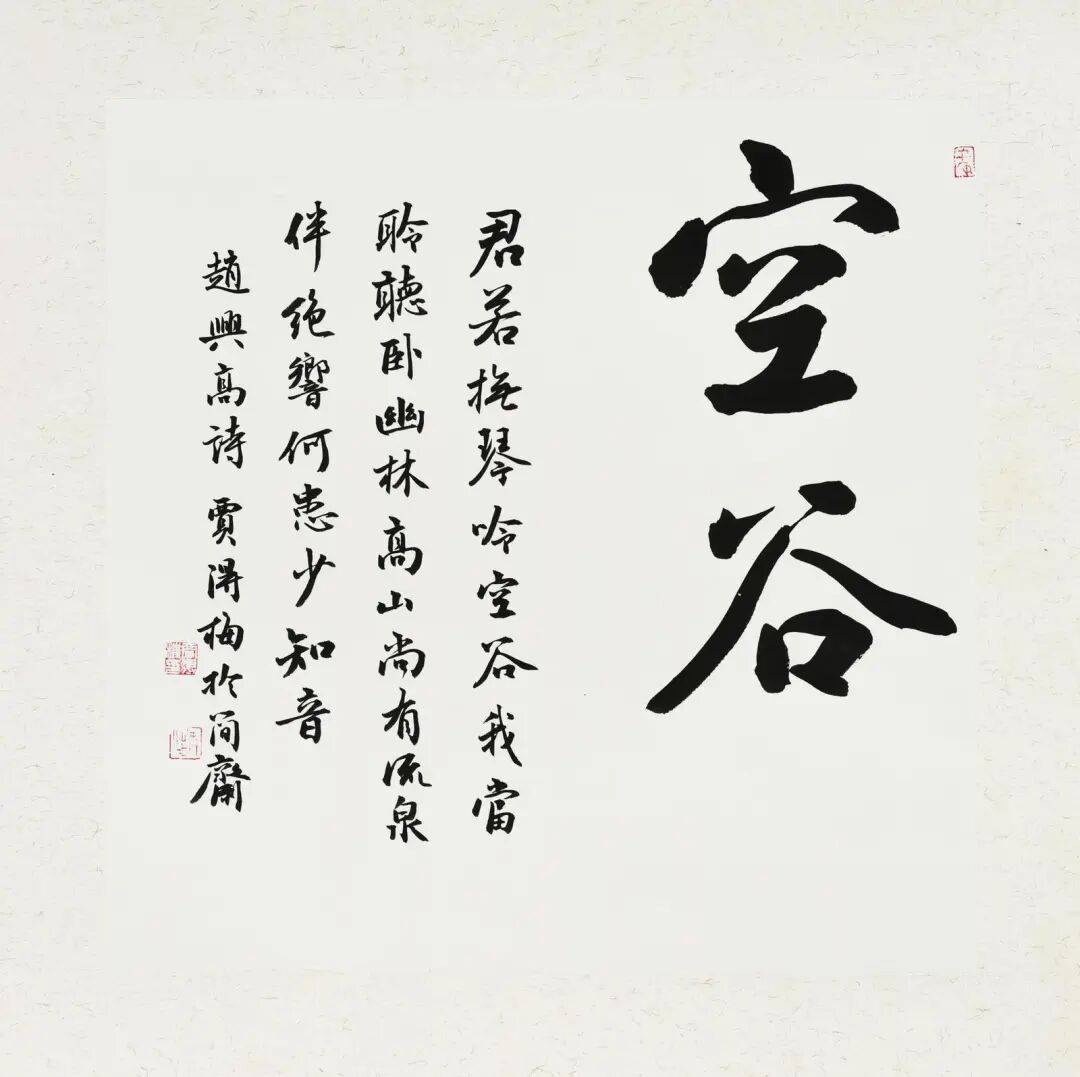 空谷
君若撫琴吟空谷我當
聆聽卧幽林高山尚有流泉
伴绝響何患少知音
趙興高詩 賈得梅於簡齋